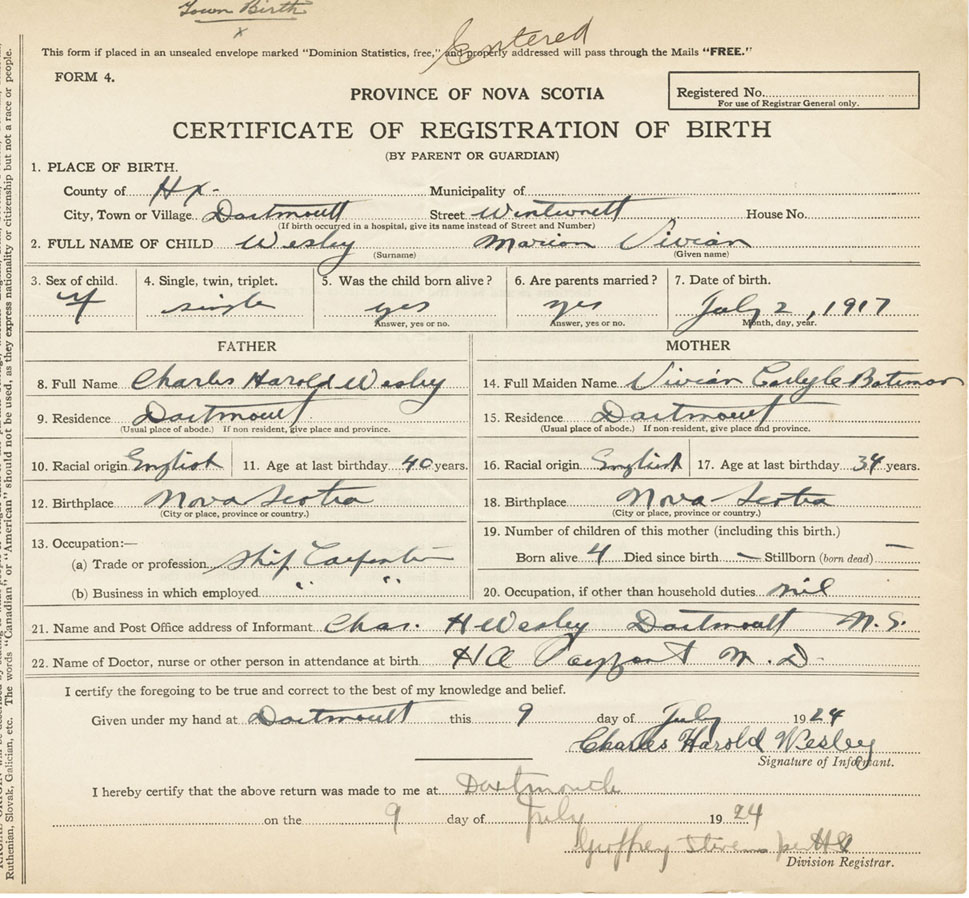 Town Birth
x
Entered
This form if placed in an unsealed envelope marked "Dominion Statistics, free," and properly addressed will pass through the Mails "FREE."
FORM 4.
PROVINCE OF NOVA SCOTIA
Registered No.
For use of Registrar General only.
CERTIFICATE OF REGISTRATION OF BIRTH
(BY PARENT OR GUARDIAN)
1. PLACE OF BIRTH.
County of Hx- Municipality of
City, Town or Village Dartmouth Street House No.
(If birth occurred in a hospital, give its name instead of Street and Number)
2. FULL NAME OF CHILD Wesley Marion Vivian
(Surname) (Given name)
3. Sex of child. 4. Single, twin, triplet. 5. Was the child born alive? 6. Are parents married? 7. Date of birth.
F single yes yes July 2, 1917
Answer, yes or no. Answer, yes or no. Month, day, year.
FATHER MOTHER
8. Full Name Charles Harold Wesley 14. Full Maiden Name Vivian Carlyle Bateman
9. Residence Dartmouth 15. Residence Dartmouth
(Usual place of abode.) If non resident, give place and province. (Usual place of abode.) If non-resident, give place and province.
10. Racial origin English 11. Age at last birthday 40 years. 16. Racial origin English 17. Age at last birthday 34 years.
12. Birthplace Nova Scotia 18. Birthplace Nova Scotia
(City or place, province or country.) (City or place, province or country.)
19. Number of children of this mother (including this birth.)
13. Occupation:—
Born alive 4 Died since birth — Stillborn (born dead) —
(a) Trade or profession Ship Carpenter
(b) Business in which employed " " 20. Occupation, if other than household duties nil
21. Name and Post Office address of Informant Chas. H Wesley Dartmouth N.S.
22. Name of Doctor, nurse or other person in attendance at birth HA Payzant M.D.
I certify the foregoing to be true and correct to the best of my knowledge and belief.
Given under my hand at Dartmouth this 9 day of July 1924
Charles Harold Wesley
Signature of Informant.
I hereby certify that the above return was made to me at Dartmouth
on the 9 day of July 1924
Geoffrey Stevens per HS
Division Registrar.
Ruthenian, Slovak, Galician, etc. The words "Canadian" or "American" should not be used, as they express nationality or citizenship but not a race or people.